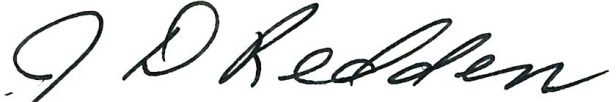 J D Redden